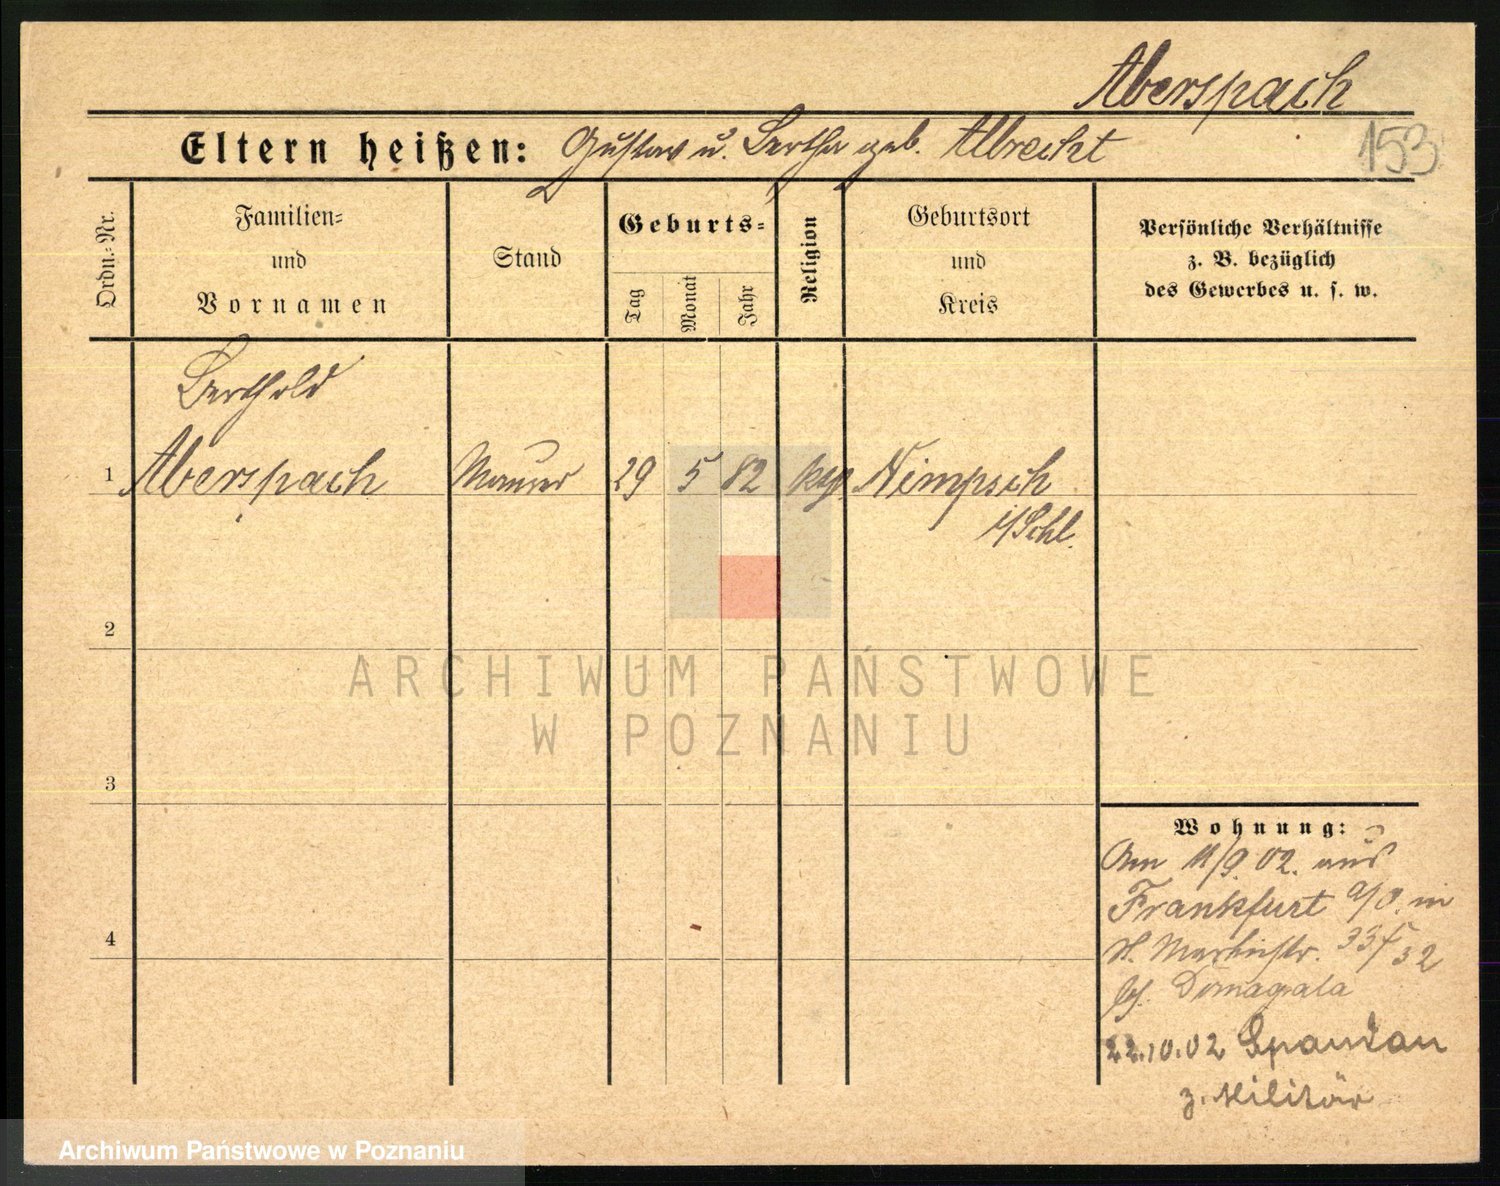 Aberspach
Eltern heißen: Gustav u. Bertha geb. Albrecht
153
Ordn.-Nr.
Familien-
und
Vornamen
Stand
Geburts-
Tag
Monat
Jahr
Religion
Geburtsort
und
Kreis
Persönliche Verhältnisse
z. B. bezüglich
des Gewerbes u. s. w.
Berthold
1 Aberspach Maurer 29 5 82 Nimpsch
i/Schl.
2
3
4
ARCHIWUM PAŃSTWOWE
W POZNANIU
Wohnung:
Am 11/9. 02. aus
Frankfurt a/O. in
St. Martinstr.
bei Domagala
22.10.02 Spandau
z. Militär
Archiwum Państwowe w Poznaniu